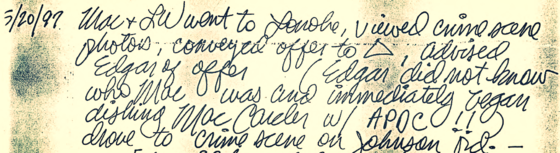 5/20/97 Mac & LW went to Lonoke, viewed crime scene
photos, conveyed offer to Δ, advised
Edgar of offer (Edgar did not know
who Mac was and immediately began
dishing Mac Carder w/ APDC !!)
drove to crime scene on Johnson Rd. —